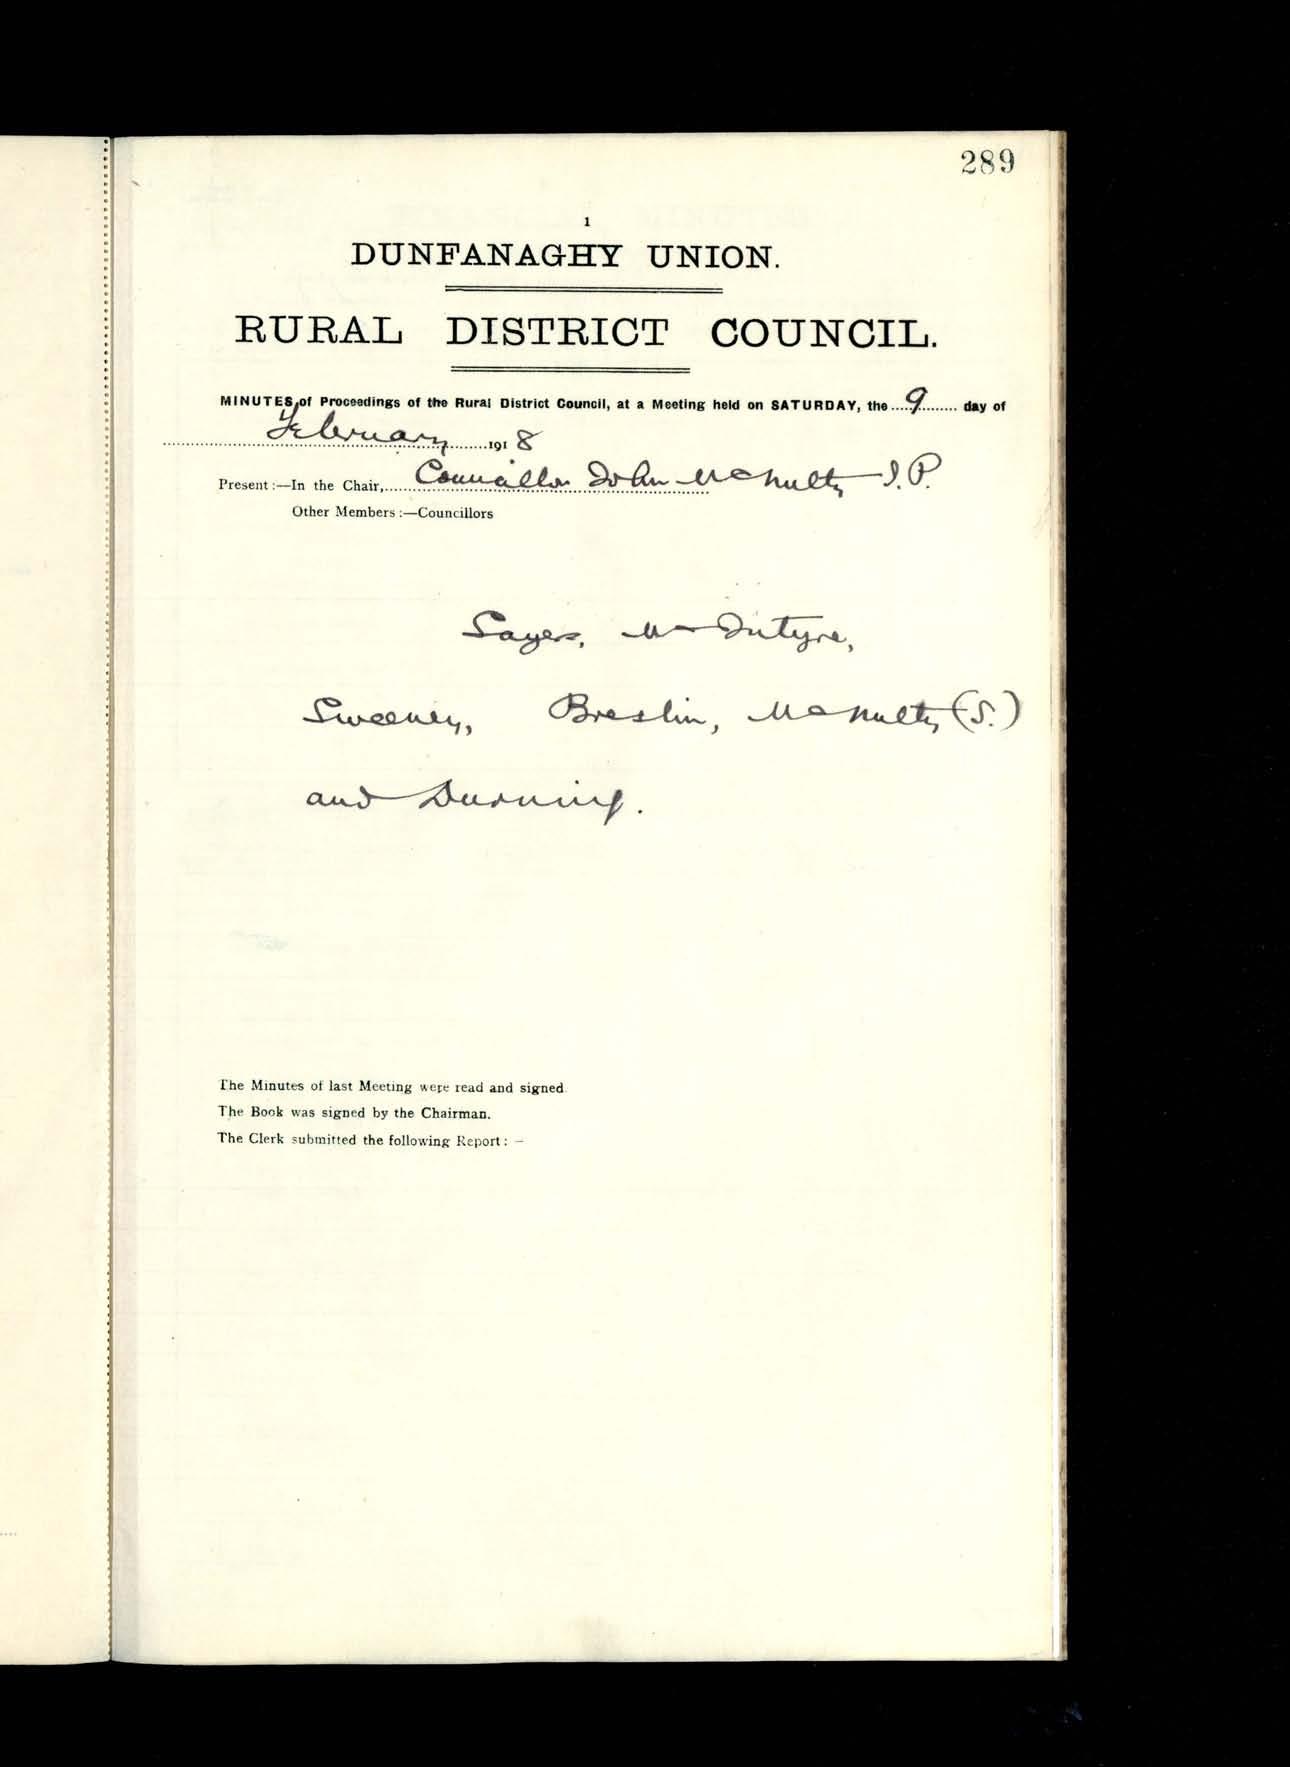 289
1
DUNFANAGHY UNION.
RURAL DISTRICT COUNCIL.
MINUTES of Proceedings of the Rural District Council, at a Meeting held on SATURDAY, the 9 day of
February 1918
Present :—In the Chair, Councillor John McNulty J.P.
Other Members :—Councillors
Sayers, McIntyre,
Sweeney, Breslin, McNulty (S.)
and Durning.
The Minutes of last Meeting were read and signed.
The Book was signed by the Chairman.
The Clerk submitted the following Report : —